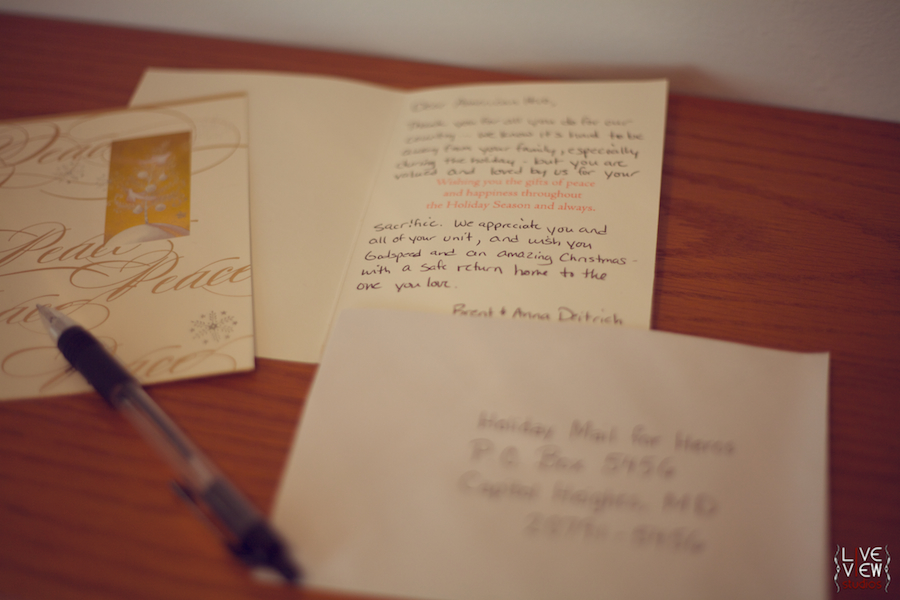 Peace
Peace
Peace
Peace
Dear American Hero,
Thank you for all you do for our
country - we know it's hard to be
away from your family, especially
during the holiday - but you are
valued and loved by us for your
Wishing you the gifts of peace
and happiness throughout
the Holiday Season and always.
sacrific. We appreciate you and
all of your unit, and wish you
Godspeed and an amazing Christmas -
with a safe return home to the
one you love.
Brent & Anna Deitrich
Holiday Mail for Heros
P.O. Box 5456
Capitol Heights, MD
20791-5456
LIVE
VIEW